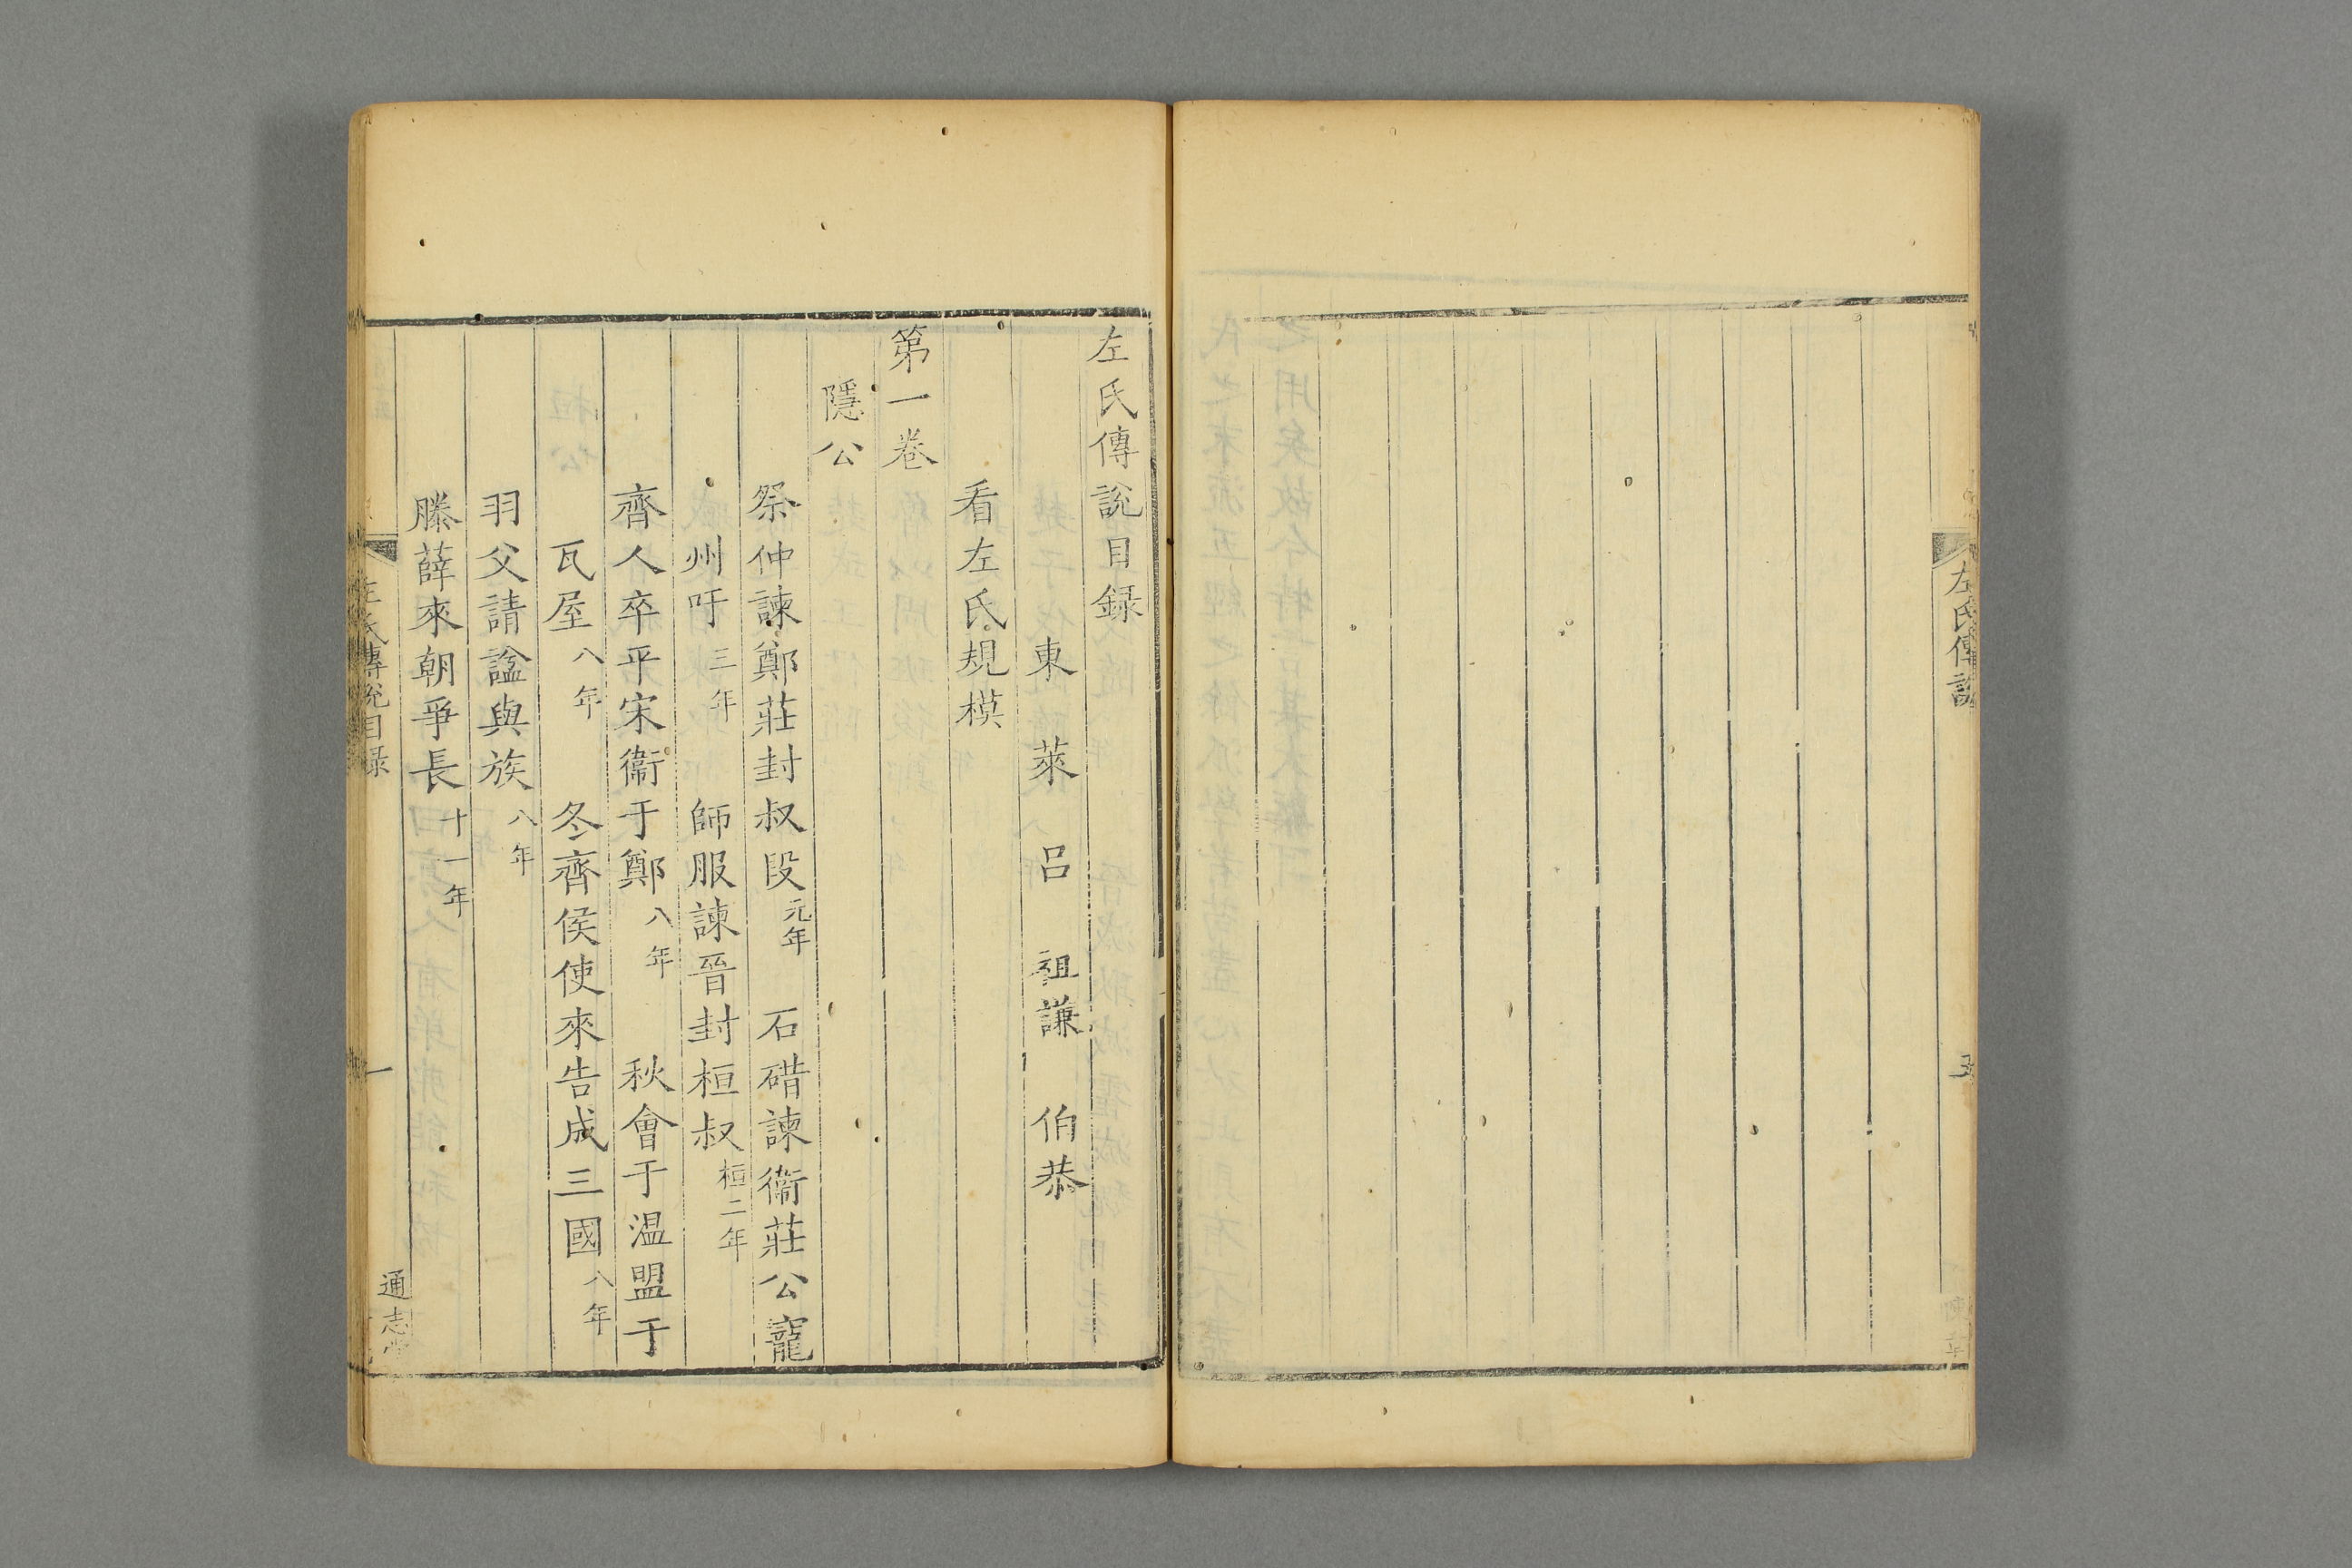 左氏傳說
五
左氏傳說目録
東萊呂祖謙伯恭
看左氏規模
第一卷
隱公
祭仲諫鄭莊封叔段元年　石碏諫衞莊公寵
州吁三年　師服諫晉封桓叔桓二年
齊人卒平宋衞于鄭八年　秋會于温盟于
瓦屋八年　冬齊侯使來告成三國八年
羽父請諡與族八年
滕薛來朝爭長十一年
左氏傳說目録
一
通志堂